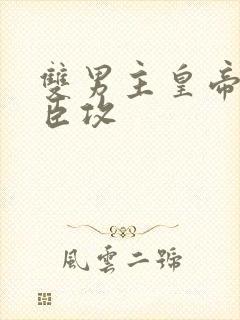 雙男主皇帝
臣攻
風雲二號